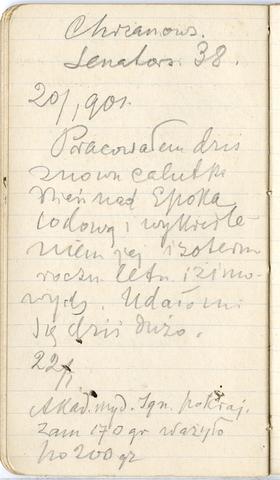 Chrzanows.
Senators. 38.
20/I 901.
Pracowałem dziś
znowu calutki
dzień nad Epoką
lodową i wykreśle-
niem jej izoterm
roczn. letn. i zimo-
wych. Udało mi
się dziś dużo.
22/I
Akad. myd. Ign. pokraj.
zam 170 gr ważyło
po 200 gr